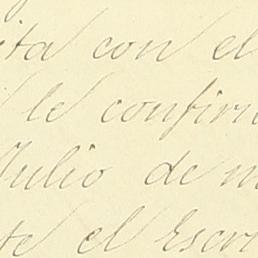 ita con el
le confir
Julio de m
te el Escri